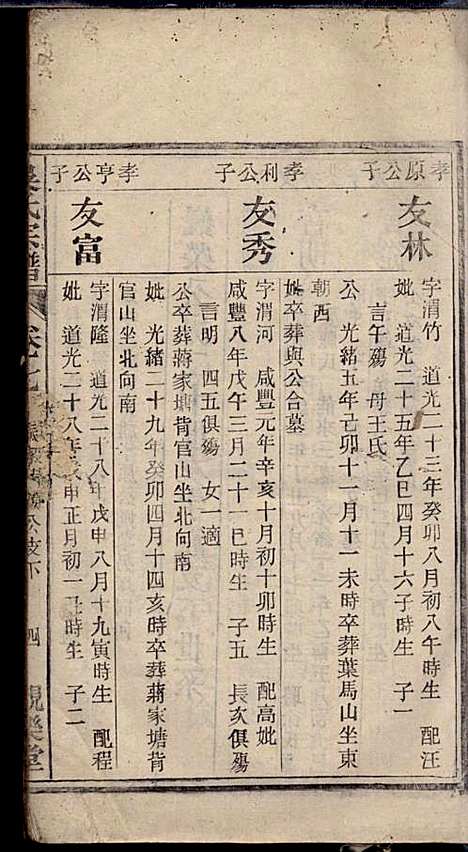 孝原公子
友林
字渭竹 道光二十三年癸卯八月初八午時生 配汪
妣 道光二十五年乙巳四月十六子時生 子一
言午殤 母王氏
公 光緒五年己卯十一月十一未時卒葬葉馬山坐東
朝西
妣卒葬與公合墓
孝利公子
友秀
字渭河 咸豐元年辛亥十月初十卯時生 配高妣
咸豐八年戊午三月二十一巳時生 子五 長亥俱殤
言明 四五俱殤 女一適
公卒葬蔣家塘背官山坐北向南
妣 光緒二十九年癸卯四月十四亥時卒葬蔣家塘背
官山坐北向南
孝亨公子
友富
字渭隆 道光二十八年戊申八月十九寅時生 配程
妣 道光二十八年戊申正月初一丑時生 子二
吳氏宗譜
卷七
公支下
四
親樂堂